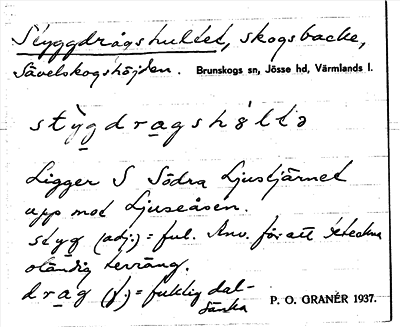 Styggdragshultet, skogsbacke,
Sävelskogshöjden. Brunskogs sn, Jösse hd, Värmlands l.
stỳgdragshøltə
Ligger S Södra Ljustjärnet
upp mot Ljuseåsen.
styg (adj.) = ful. Anv. för att beteckna
oländig terräng.
drag (f.) = fuktig dal-
sänka P. O. GRANÉR 1937.